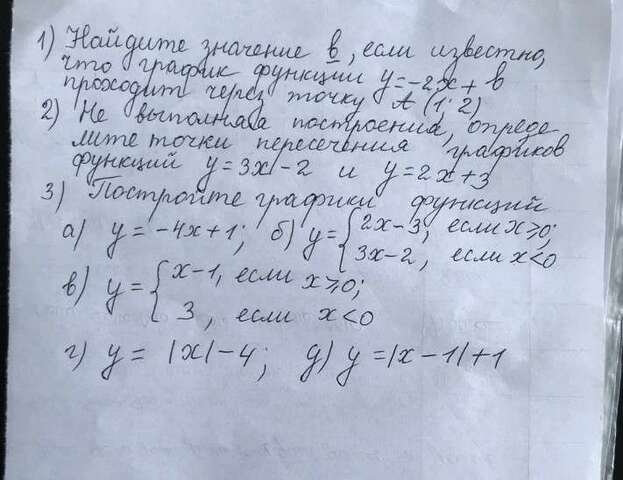 1) Найдите значение b, если известно,
что график функции y=-2x+b
проходит через точку A (1; 2)
2) Не выполняя построения, опреде-
лите точки пересечения графиков
функций y=3x-2 и y=2x+3
3) Постройте графики функций
а) y = -4x+1; б) y={2x-3, если x≥0;
3x-2, если x<0
в) y={x-1, если x≥0;
3, если x<0
г) y = |x|-4; д) y=|x-1|+1